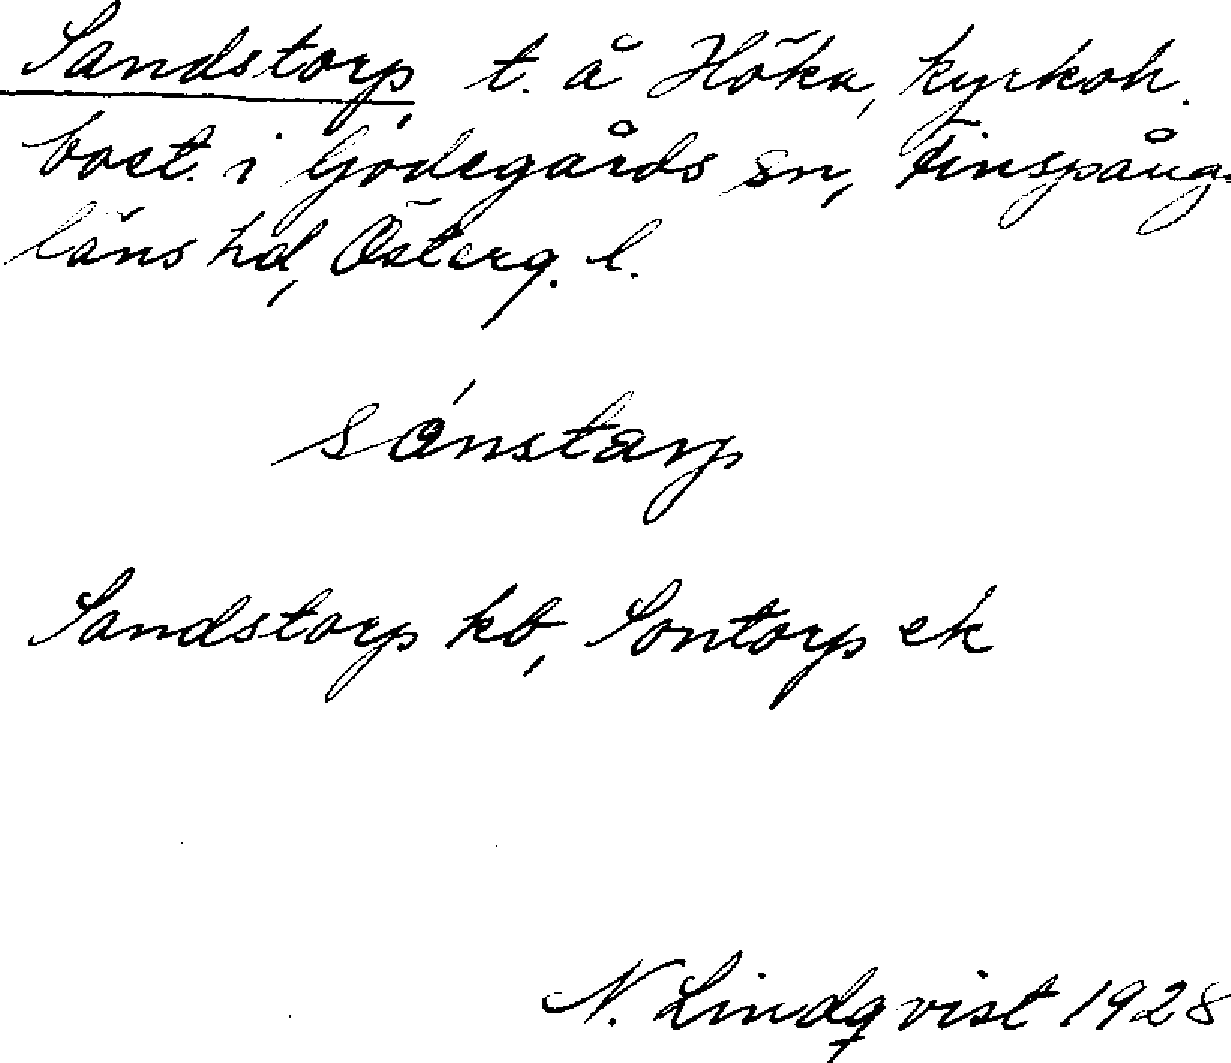 Sandstorp, t. å Höka, kyrkoh.
bost. i Godegårds sn, Finspång
läns hd, Österg. l.
sánstarp
Sandstorp kb, Sontorp ek
N. Lindqvist 1928